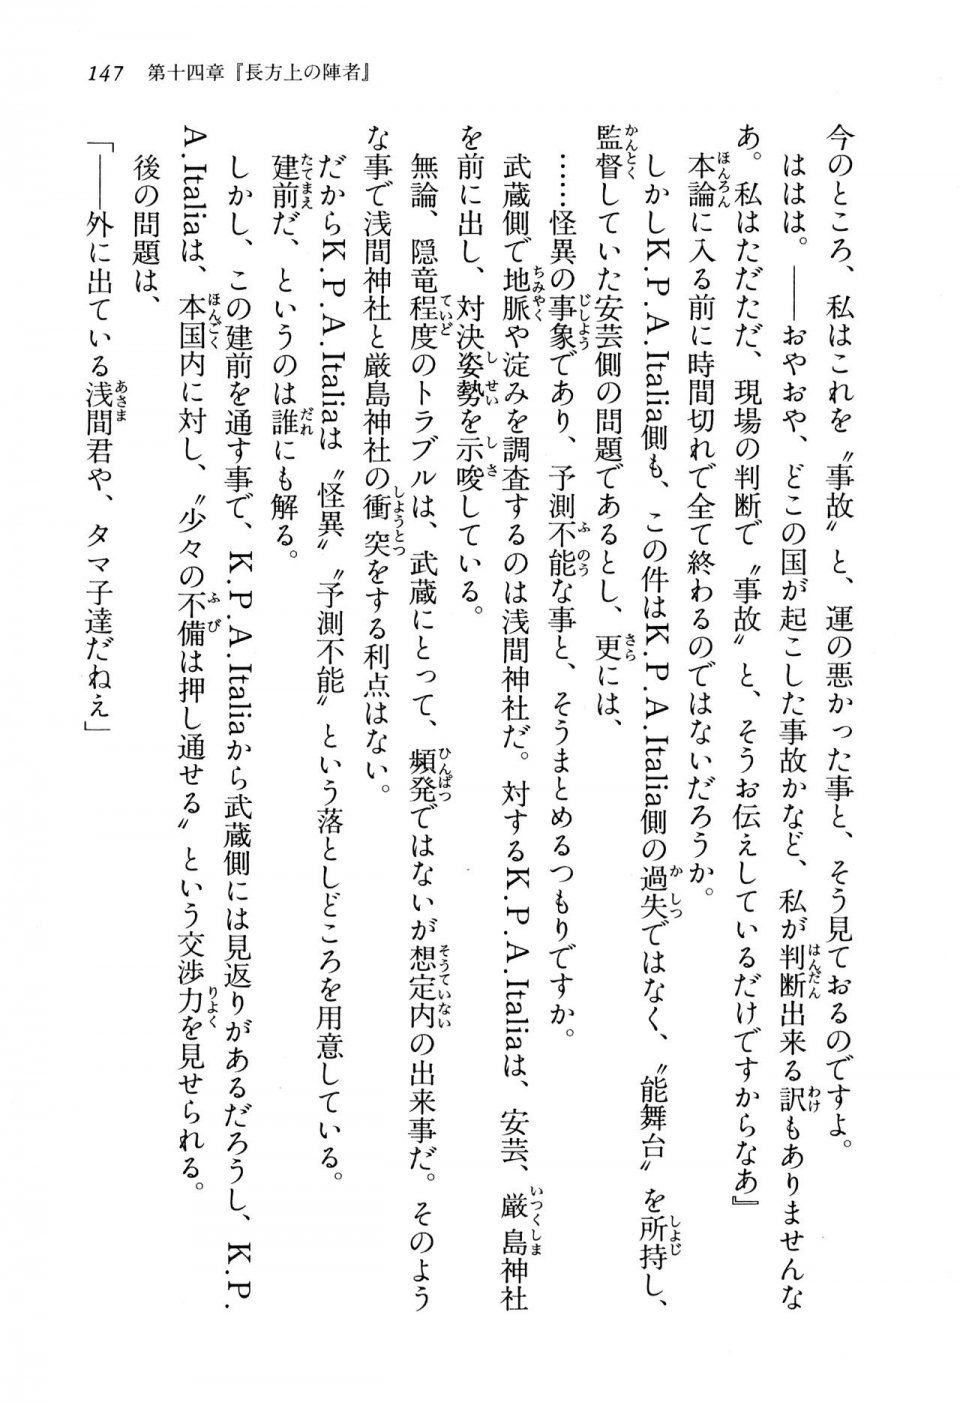 147　第十四章『長方上の陣者』
今のところ、私はこれを〝事故〟と、運の悪かった事と、そう見ておるのですよ。
ははは。――おやおや、どこの国が起こした事故かなど、私が判断出来る訳もありませんな
あ。私はただただ、現場の判断で〝事故〟と、そうお伝えしているだけですからなあ』
本論に入る前に時間切れで全て終わるのではないだろうか。
しかしK.P.A.Italia側も、この件はK.P.A.Italia側の過失ではなく、〝能舞台〟を所持し、
監督していた安芸側の問題であるとし、更には、
……怪異の事象であり、予測不能な事と、そうまとめるつもりですか。
武蔵側で地脈や淀みを調査するのは浅間神社だ。対するK.P.A.Italiaは、安芸、厳島神社
を前に出し、対決姿勢を示唆している。
無論、隠竜程度のトラブルは、武蔵にとって、頻発ではないが想定内の出来事だ。そのよう
な事で浅間神社と厳島神社の衝突をする利点はない。
だからK.P.A.Italiaは〝怪異〟〝予測不能〟という落としどころを用意している。
建前だ、というのは誰にも解る。
しかし、この建前を通す事で、K.P.A.Italiaから武蔵側には見返りがあるだろうし、K.P.
A.Italiaは、本国内に対し、〝少々の不備は押し通せる〟という交渉力を見せられる。
後の問題は、
「――外に出ている浅間君や、タマ子達だねえ」